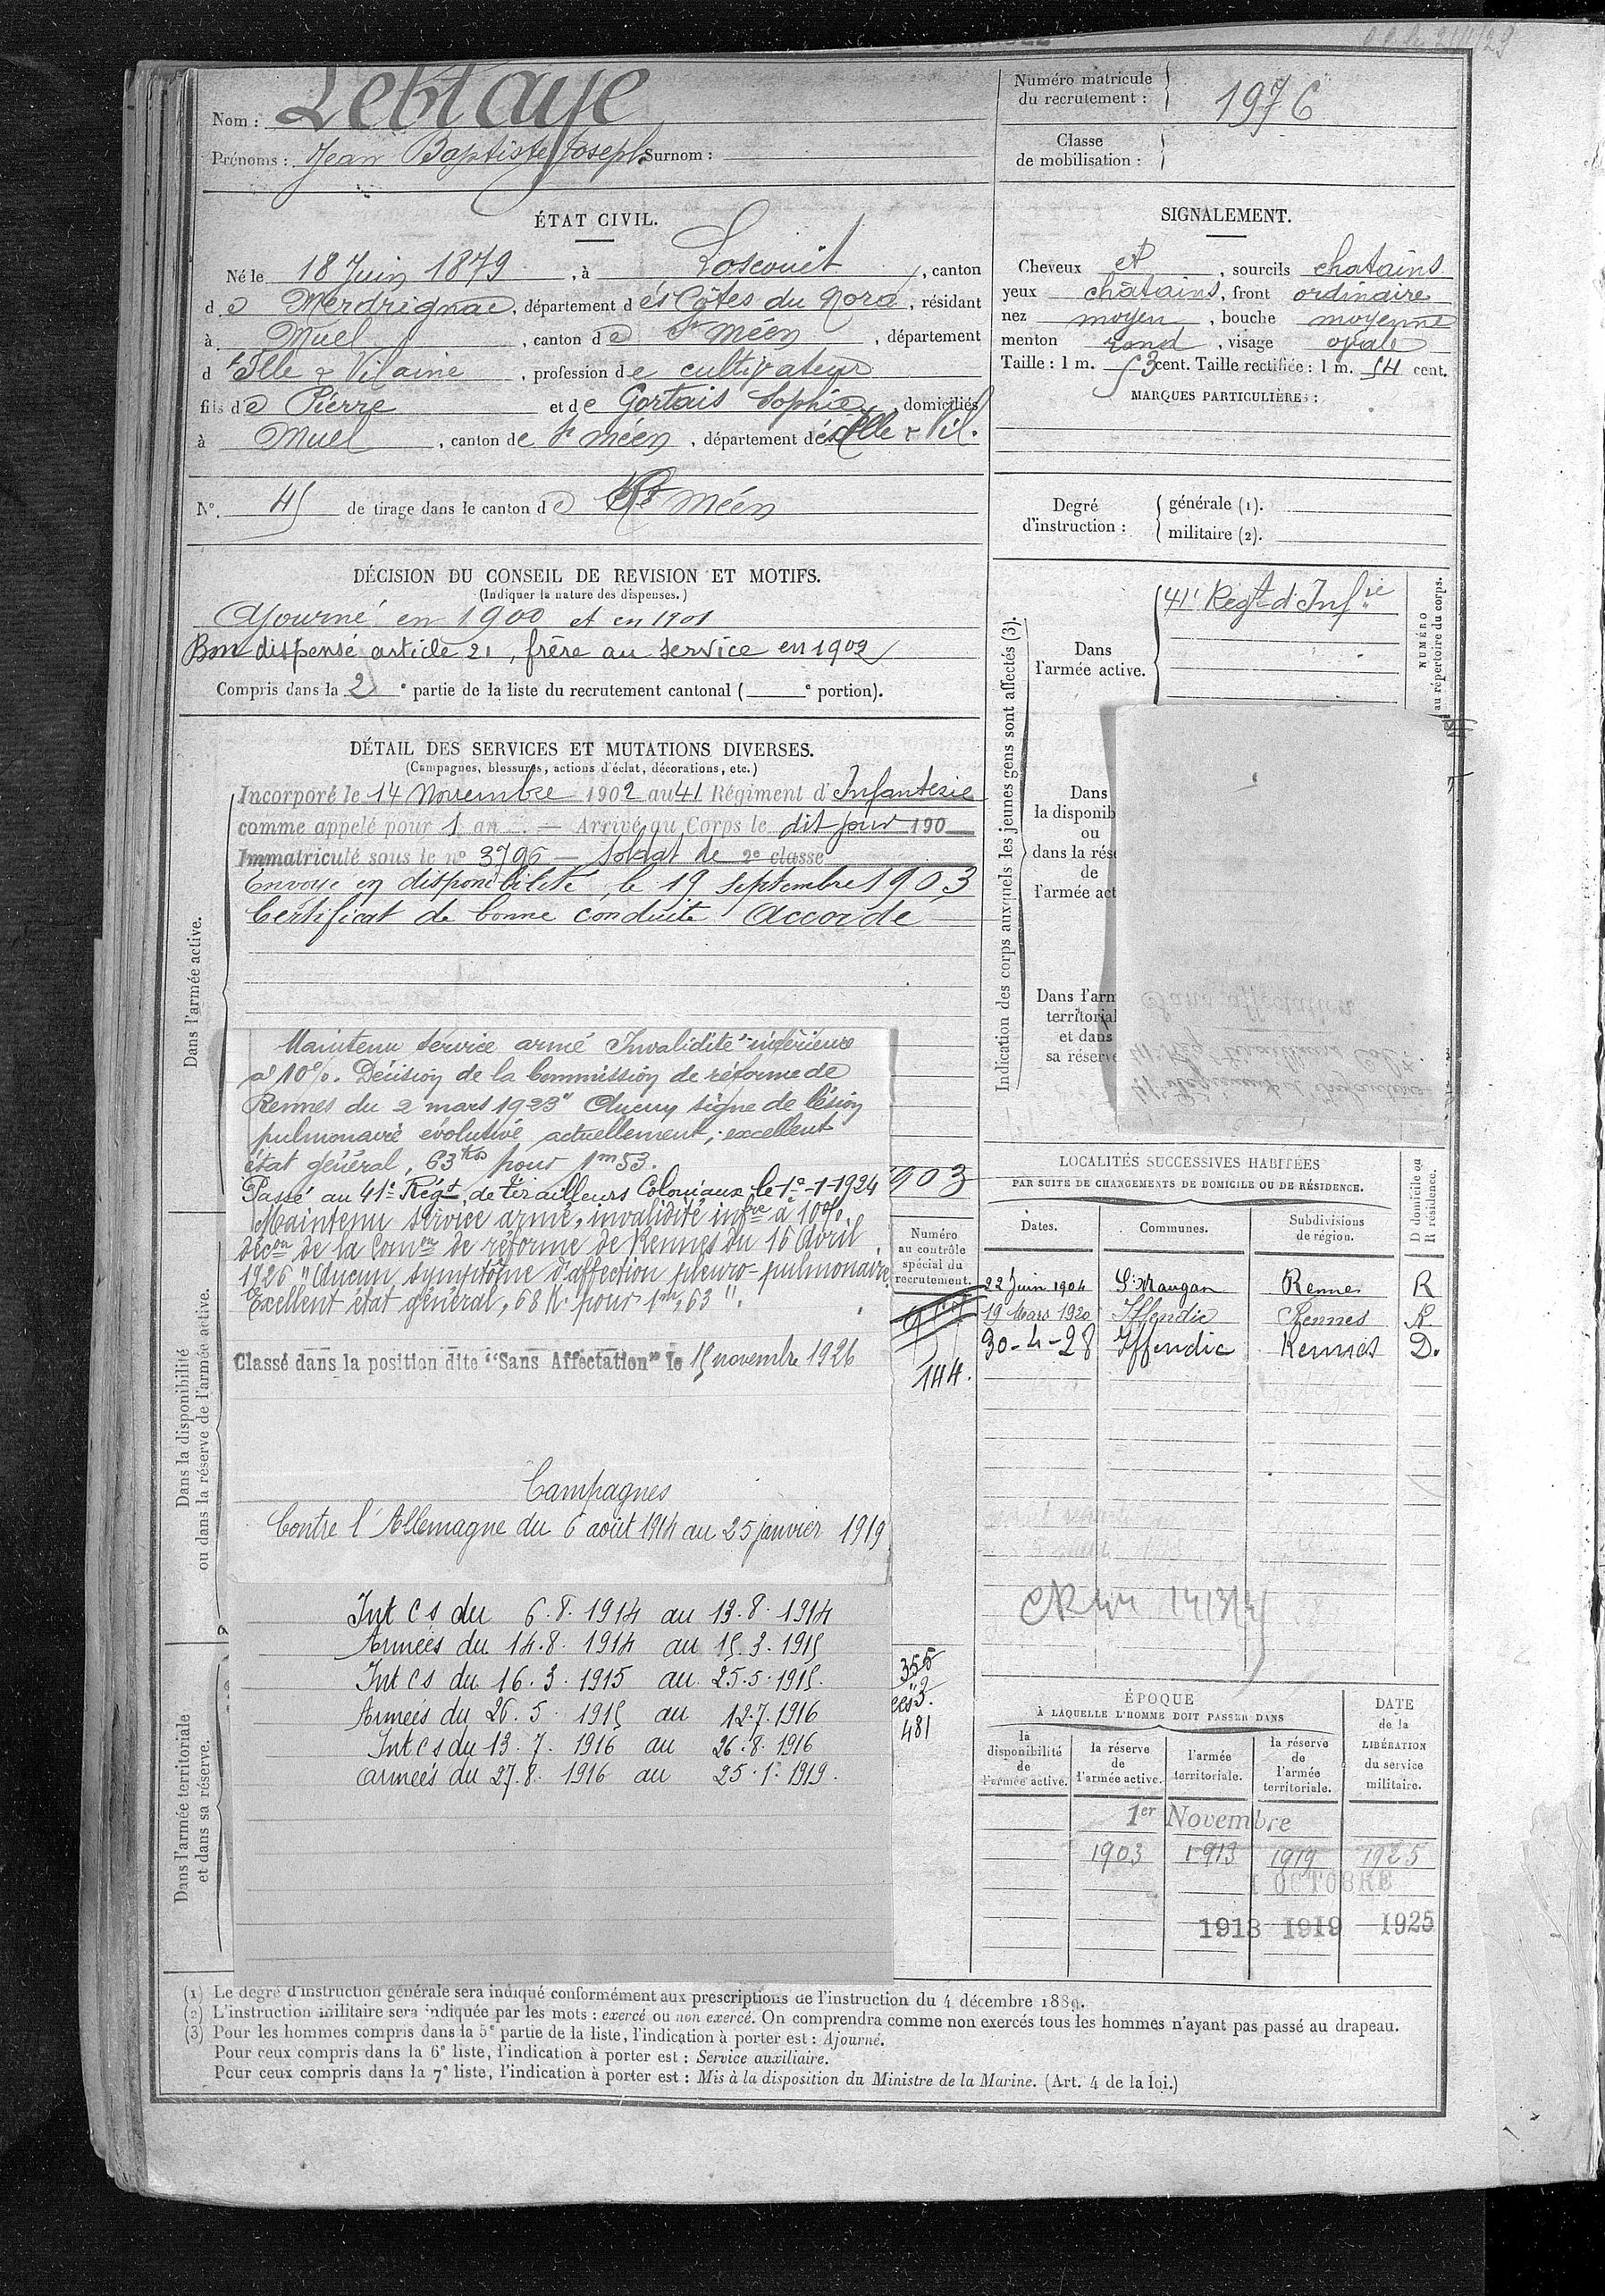 Nom : Leblaye
Prénoms : Jean Baptiste Joseph Surnom :
Numéro matricule du recrutement : 1976
Classe de mobilisation :
ÉTAT CIVIL.
Né le 18 Juin 1879, à Loscouët, canton
de Merdrignac, département des Côtes du Nord, résidant
à Muel, canton de St Méen, département
d'Ille & Vilaine, profession de cultivateur
fils de Pierre et de Gortais Sophie, domiciliés
à Muel, canton de St Méen, département d'Ille & Vil.
N° 45 de tirage dans le canton de St Méen
SIGNALEMENT.
Cheveux et, sourcils chatains
yeux châtains, front ordinaire
nez moyen, bouche moyenne
menton rond, visage ovale
Taille : 1 m. 53 cent. Taille rectifiée : 1 m. 54 cent.
MARQUES PARTICULIÈRES :
Degré d'instruction : générale (1).
militaire (2).
DÉCISION DU CONSEIL DE REVISION ET MOTIFS.
(Indiquer la nature des dispenses.)
Ajourné en 1900 et en 1901
Bon dispensé article 21, frère au service en 1902
Compris dans la 2e partie de la liste du recrutement cantonal (e portion).
DÉTAIL DES SERVICES ET MUTATIONS DIVERSES.
(Campagnes, blessures, actions d'éclat, décorations, etc.)
Dans l'armée active.
Incorporé le 14 Novembre 1902 au 41 Régiment d'Infanterie
comme appelé pour 1 an. — Arrivé au Corps le dit jour 190
Immatriculé sous le n° 3796 — Soldat de 2e classe
Envoyé en disponibilité le 19 Septembre 1903
Certificat de bonne conduite Accordé
Maintenu service armé Invalidité inférieure
à 10%. Décision de la Commission de réforme de
Rennes du 2 mars 1923 "Aucun signe de lésion
pulmonaire évolutive actuellement ; excellent
état général, 63 kos pour 1m53.
Passé au 41e Régt de tirailleurs Coloniaux le 1er-1-1924
Maintenu service armé, invalidité infre à 10%.
décon de la Comon de réforme de Rennes du 16 Avril
1926 "Aucun symptôme d'affection pleuro-pulmonaire
Excellent état général, 68 K. pour 1m,63".
Classé dans la position dite "Sans Affectation" le 15 novembre 1926
Dans la disponibilité ou dans la réserve de l'armée active.
Campagnes
Contre l'Allemagne du 6 août 1914 au 25 janvier 1919
Int Cs du 6.8.1914 au 13.8.1914
Armées du 14.8.1914 au 15.3.1915
Int Cs du 16.3.1915 au 25.5.1915.
Armées du 26.5.1915 au 12.7.1916
Int Cs du 13.7.1916 au 26.8.1916
armées du 27.8.1916 au 25.1.1919.
Dans l'armée territoriale et dans sa réserve.
903
Numéro au contrôle spécial du recrutement.
144.
355
481
Indication des corps auxquels les jeunes gens sont affectés (3).
Dans l'armée active.
41e Régt d'Infie
NUMÉRO au répertoire du corps.
Dans
la disponib
ou
dans la rése
de
l'armée act
Dans l'arm
territorial
et dans
sa réserve
LOCALITÉS SUCCESSIVES HABITÉES
PAR SUITE DE CHANGEMENTS DE DOMICILE OU DE RÉSIDENCE.
Dates. Communes. Subdivisions de région. D domicile ou R résidence.
22 Juin 1904 St Maugan Rennes R
19 Mars 1920 Iffendic Rennes R
30-4-28 Iffendic Rennes D.
ÉPOQUE
À LAQUELLE L'HOMME DOIT PASSER DANS
la disponibilité de l'armée active.
la réserve de l'armée active.
l'armée territoriale.
la réserve de l'armée territoriale.
DATE de la LIBÉRATION du service militaire.
1er Novembre
1903 1913 1919 1925
1 OCTOBRE
1913 1919 1925
(1) Le degré d'instruction générale sera indiqué conformément aux prescriptions de l'instruction du 4 décembre 1889.
(2) L'instruction militaire sera indiquée par les mots : exercé ou non exercé. On comprendra comme non exercés tous les hommes n'ayant pas passé au drapeau.
(3) Pour les hommes compris dans la 5e partie de la liste, l'indication à porter est : Ajourné.
Pour ceux compris dans la 6e liste, l'indication à porter est : Service auxiliaire.
Pour ceux compris dans la 7e liste, l'indication à porter est : Mis à la disposition du Ministre de la Marine. (Art. 4 de la loi.)